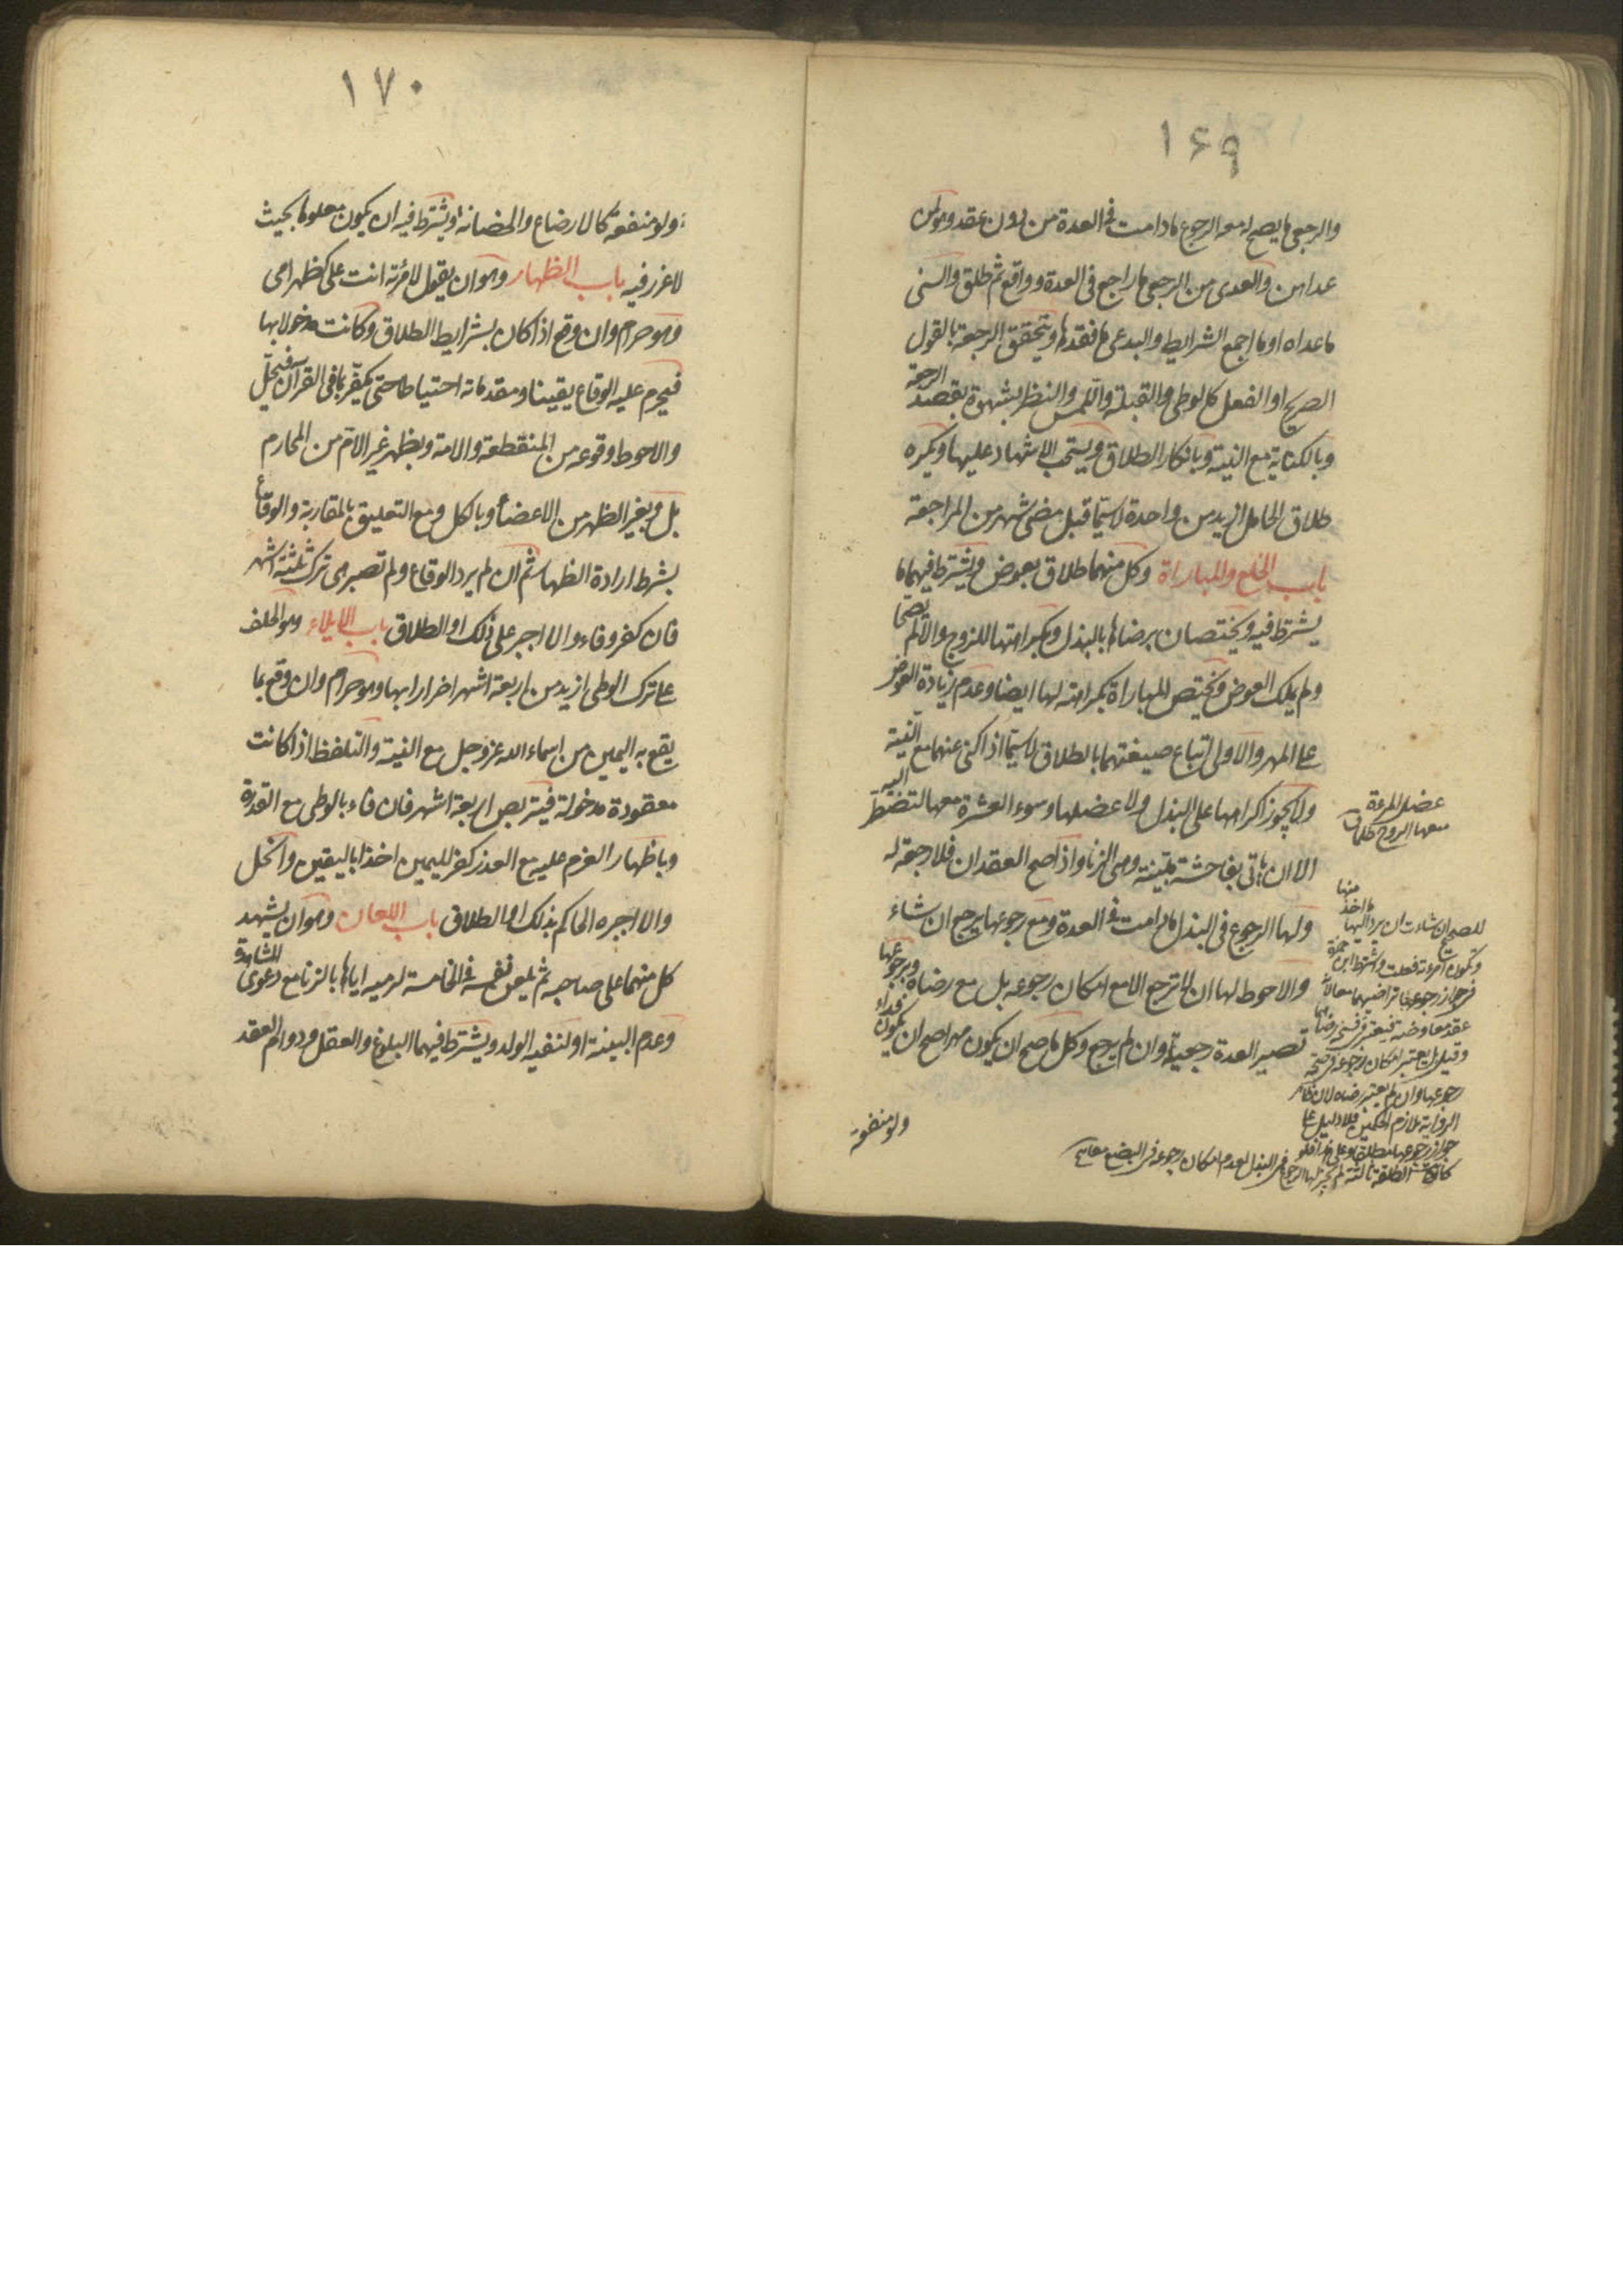 ١٦٩
والرجعى ما يصح له معه الرجوع ما دامت فى العدة من دون عقد وهو لمن
عداهن والعدى من الرجعى ما راجع فى العدة وواقع ثم طلق والسنى
ما عداه او ما اجمع الشرايط والبدعى ما فقدها ويتحقق الرجعة بالقول
الصريح او الفعل كالوطى والقبلة واللمس والنظر بشهوة بقصد الرجعة
وبالكناية مع النية وبانكار الطلاق ويستحب الاشهاد عليها ويكره
طلاق الحامل ازيد من واحدة لا سيما قبل مضى شهر من المراجعة
باب الخلع والمباراة وكل منهما طلاق بعوض ويشترط فيهما ما
يشترط فيه ويختصان برضاها بالبذل وبكراهتها للزوج والا لم يصحا
ولم يملك العوض ويختص المباراة بكراهته لها ايضا وعدم زيادة العوض
على المهر والاولى اتباع صيغتهما بالطلاق لا سيما اذا كنى عنهما مع النية
ولا يجوز اكراهها على البذل ولا عضلها وسوء العشرة معها لتضطر اليه
الا ان ياتى بفاحشة مبينة وهى الزنا واذا صح العقدان فلا رجعة له
ولها الرجوع فى البذل ما دامت فى العدة ومع رجوعها يرجع ان شاء
والاحوط لها ان لا ترجع الا مع امكان رجوعه بل مع رضاه وبرجوعها
تصير العدة رجعية وان لم يرجع وكل ما صح ان يكون مهرا صح ان يكون فداء
ولو منفعة
عضل المرءة
معها الزوج
منها
للصحيح ان شاءت ان يرد اليها ما اخذ
وتكون امرءته فعلت واشترط ابن حمزة
فى جواز رجوعها تراضيهما معا لانه
عقد معاوضة فيعتبر فى فسخه رضاهما
وقيل بل يعتبر امكان رجوعه فى صحة
رجوعها وان لم يعتبر رضاه لان ظاهر
الرواية تلازم الحكمين فلا دليل على
جواز رجوعها مطلقا وعلى هذا فلو
كانت الطلقة ثالثة لم يجز لها الرجوع فى البذل لعدم امكان رجوعه فى البضع
١٧٠
ولو منفعة كالارضاع والحضانة ويشترط فيه ان يكون معلوما بحيث
لا غرر فيه باب الظهار وهو ان يقول لامرئته انت على كظهر امى
وهو حرام وان وقع اذا كان بشرايط الطلاق وكانت مدخولا بها
فيحرم عليه الوقاع يقينا ومقدماته احتياطا حتى يكفر بما فى القرآن فيحل
والاحوط وقوعه من المنقطعة والامة وبظهر غير الام من المحارم
بل وبغير الظهر من الاعضاء وبالكل ومع التعليق بالمقاربة والوقاع
بشرط ارادة الظهار ثم ان لم يرد الوقاع ولم تصبر هى ترك ثلثة اشهر
فان كفر وفاء والا اجبر على ذلك او الطلاق باب الايلاء وهو الحلف
على ترك الوطى ازيد من اربعة اشهر اضرارا بها وهو حرام وان وقع بما
يقع به اليمين من اسماء الله عز وجل مع النية والتلفظ اذا كانت
معقودة مدخولة فيتربص اربعة اشهر فان فاء بالوطى مع القدرة
وباظهار العزم عليه مع العذر كفر لليمين اخذا باليقين وانحل
والا اجبره الحاكم بذلك او الطلاق باب اللعان وهو ان يشهد
كل منهما على صاحبه ثم يلعن نفسه فى الخامسة لرميه اياها بالزنا مع دعوى المشاهدة
وعدم البينة او لنفيه الولد ويشترط فيهما البلوغ والعقل ودوام العقد